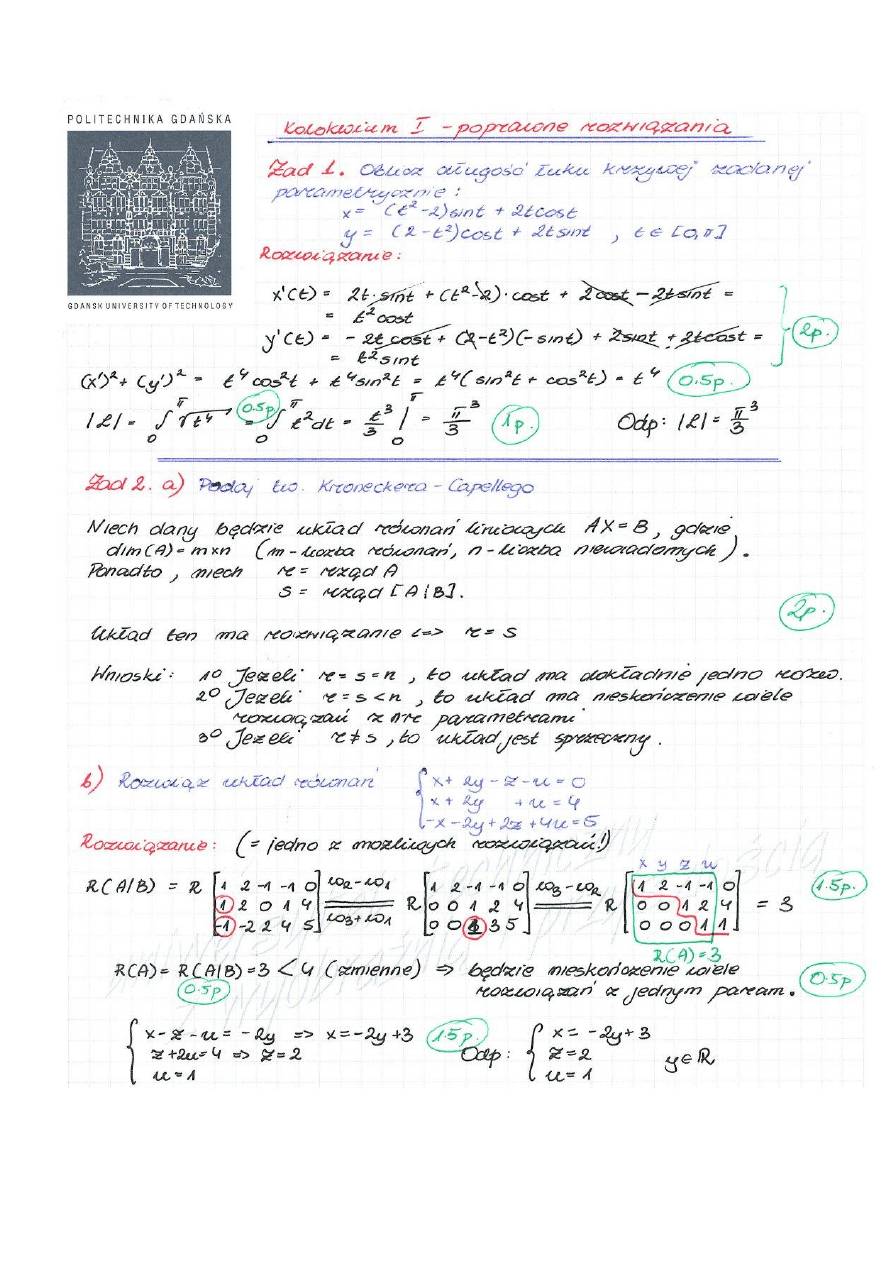 POLITECHNIKA GDAŃSKA
GDANSK UNIVERSITY OF TECHNOLOGY
Kolokwium I - poprawne rozwiązania
Zad 1. Oblicz długość łuku krzywej zadanej
parametrycznie :
x = (t²-2)sint + 2tcost
y = (2-t²)cost + 2tsint , t∈[0,π]
Rozwiązanie:
x'(t) = 2t·sint + (t²-2)·cost + 2cost - 2tsint =
= t²cost
y'(t) = -2tcost + (2-t²)(-sint) + 2sint + 2tcost =
= t²sint
2p.
(x')² + (y')² = t⁴cos²t + t⁴sin²t = t⁴(sin²t + cos²t) = t⁴ 0.5p.
|L| = ∫₀^π √t⁴ 0.5p = ∫₀^π t²dt = t³/3 |₀^π = π³/3 1p. Odp: |L| = π³/3
Zad 2. a) Podaj tw. Kroneckera - Capellego
Niech dany będzie układ równań liniowych AX = B, gdzie
dim(A) = m×n (m - liczba równań, n - liczba niewiadomych).
Ponadto, niech r = rząd A
s = rząd [A|B].
2p.
Układ ten ma rozwiązanie <=> r = s
Wnioski: 1° Jeżeli r = s = n, to układ ma dokładnie jedno rozw.
2° Jeżeli r = s < n, to układ ma nieskończenie wiele
rozwiązań z n-r parametrami
3° Jeżeli r ≠ s, to układ jest sprzeczny.
b) Rozwiąż układ równań { x + 2y - z - u = 0
x + 2y + u = 4
-x - 2y + 2z + 4u = 5
Rozwiązanie: (= jedno z możliwych rozwiązań!)
x y z u
R(A|B) = R [1 2 -1 -1 0 w2-w1 R [1 2 -1 -1 0 w3-w2 R [1 2 -1 -1 0 1.5p.
1 2 0 1 4 0 0 1 2 4 0 0 1 2 4 = 3
-1 -2 2 4 5] w3+w1 0 0 1 3 5] 0 0 0 1 1]
R(A)=3
R(A) = R(A|B) = 3 < 4 (zmienne) => będzie nieskończenie wiele
0.5p rozwiązań z jednym param. 0.5p
{ x - z - u = -2y => x = -2y+3 1.5p. { x = -2y+3
z + 2u = 4 => z = 2 Odp: z = 2 y∈R
u = 1 u = 1